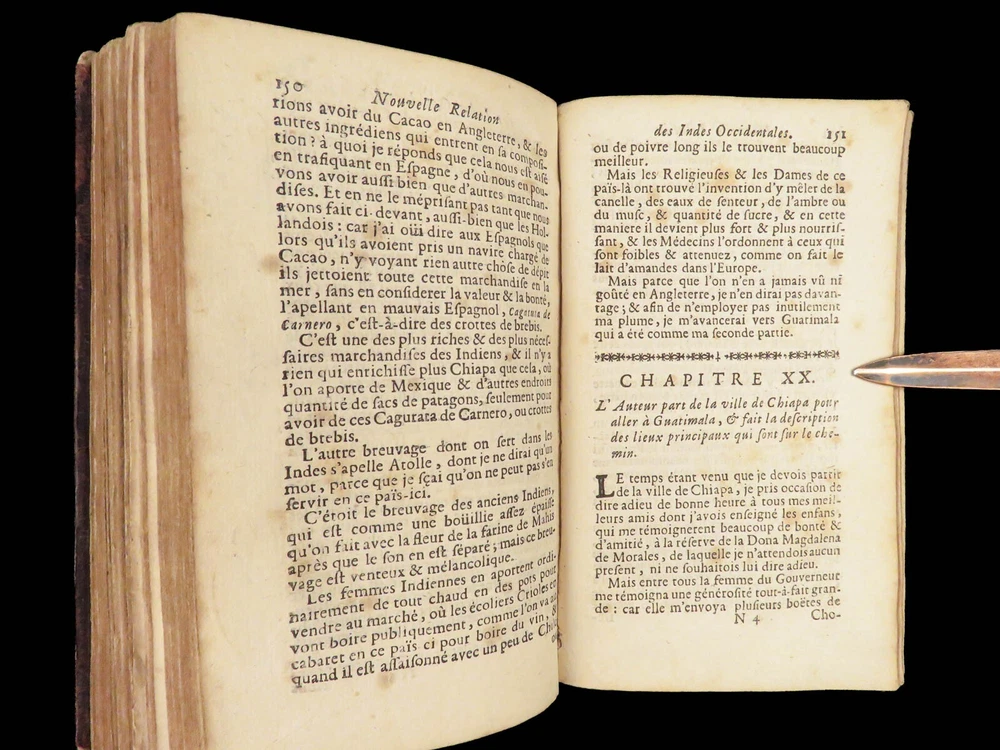 150
Nouvelle Relation
rions avoir du Cacao en Angleterre, & les
autres ingrédiens qui entrent en sa composi-
tion? à quoi je réponds que cela nous est aisé
en trafiquant en Espagne, d'où nous en pou-
vons avoir aussi bien que d'autres marchan-
dises. Et en ne le méprisant pas tant que nous
avons fait ci-devant, aussi-bien que les Hol-
landois: car j'ai oüi dire aux Espagnols que
lors qu'ils avoient pris un navire chargé de
Cacao, n'y voyant rien autre chose de dépit
ils jettoient toute cette marchandise en la
mer, sans en considerer la valeur & la bonté,
l'apellant en mauvais Espagnol, de
Carnero, c'est-à-dire des crottes de brebis.
C'est une des plus riches & des plus néces-
saires marchandises des Indiens, & il n'y a
rien qui enrichisse plus Chiapa que cela, où
l'on aporte de Mexique & d'autres endroits
quantité de sacs de patagons, seulement pour
avoir de ces Cagurata de Carnero, ou crottes
de brebis.
L'autre breuvage dont on sert dans les
Indes s'apelle Atolle, dont je ne dirai qu'un
mot, parce que je sçai qu'on ne peut pas s'en
servir en ce païs-ici.
C'étoit le breuvage des anciens Indiens,
qui est comme une boüillie assez épaisse
qu'on fait avec la fleur de la farine de Mahis
après que le son en est séparé; mais ce breu-
vage est venteux & mélancolique.
Les femmes Indiennes en aportent ordi-
nairement de tout chaud en des pots pour
vendre au marché, où les écoliers Crioles en
vont boire publiquement, comme l'on va au
cabaret en ce païs ci pour boire du vin, &
quand il est assaisonné avec un peu de Chi-
des Indes Occidentales. 151
ou de poivre long ils le trouvent beaucoup
meilleur.
Mais les Religieuses & les Dames de ce
païs-là ont trouvé l'invention d'y mêler de la
canelle, des eaux de senteur, de l'ambre ou
du musc, & quantité de sucre, & en cette
maniere il devient plus fort & plus nourris-
sant, & les Médecins l'ordonnent à ceux qui
sont foibles & attenuez, comme on fait le
lait d'amandes dans l'Europe.
Mais parce que l'on n'en a jamais vû ni
goûté en Angleterre, je n'en dirai pas davan-
tage; & afin de n'employer pas inutilement
ma plume, je m'avancerai vers Guatimala
qui a été comme ma seconde partie.
CHAPITRE XX.
L'Auteur part de la ville de Chiapa pour
aller à Guatimala, & fait la description
des lieux principaux qui sont sur le che-
min.
LE temps étant venu que je devois partir
de la ville de Chiapa, je pris occasion de
dire adieu de bonne heure à tous mes meil-
leurs amis dont j'avois enseigné les enfans,
qui me témoignerent beaucoup de bonté &
d'amitié, à la réserve de la Dona Magdalena
de Morales, de laquelle je n'attendois aucun
present, ni ne souhaitois lui dire adieu.
Mais entre tous la femme du Gouverneur
me témoigna une générosité tout-à-fait gran-
de: car elle m'envoya plusieurs boëtes de
N 4 Cho-